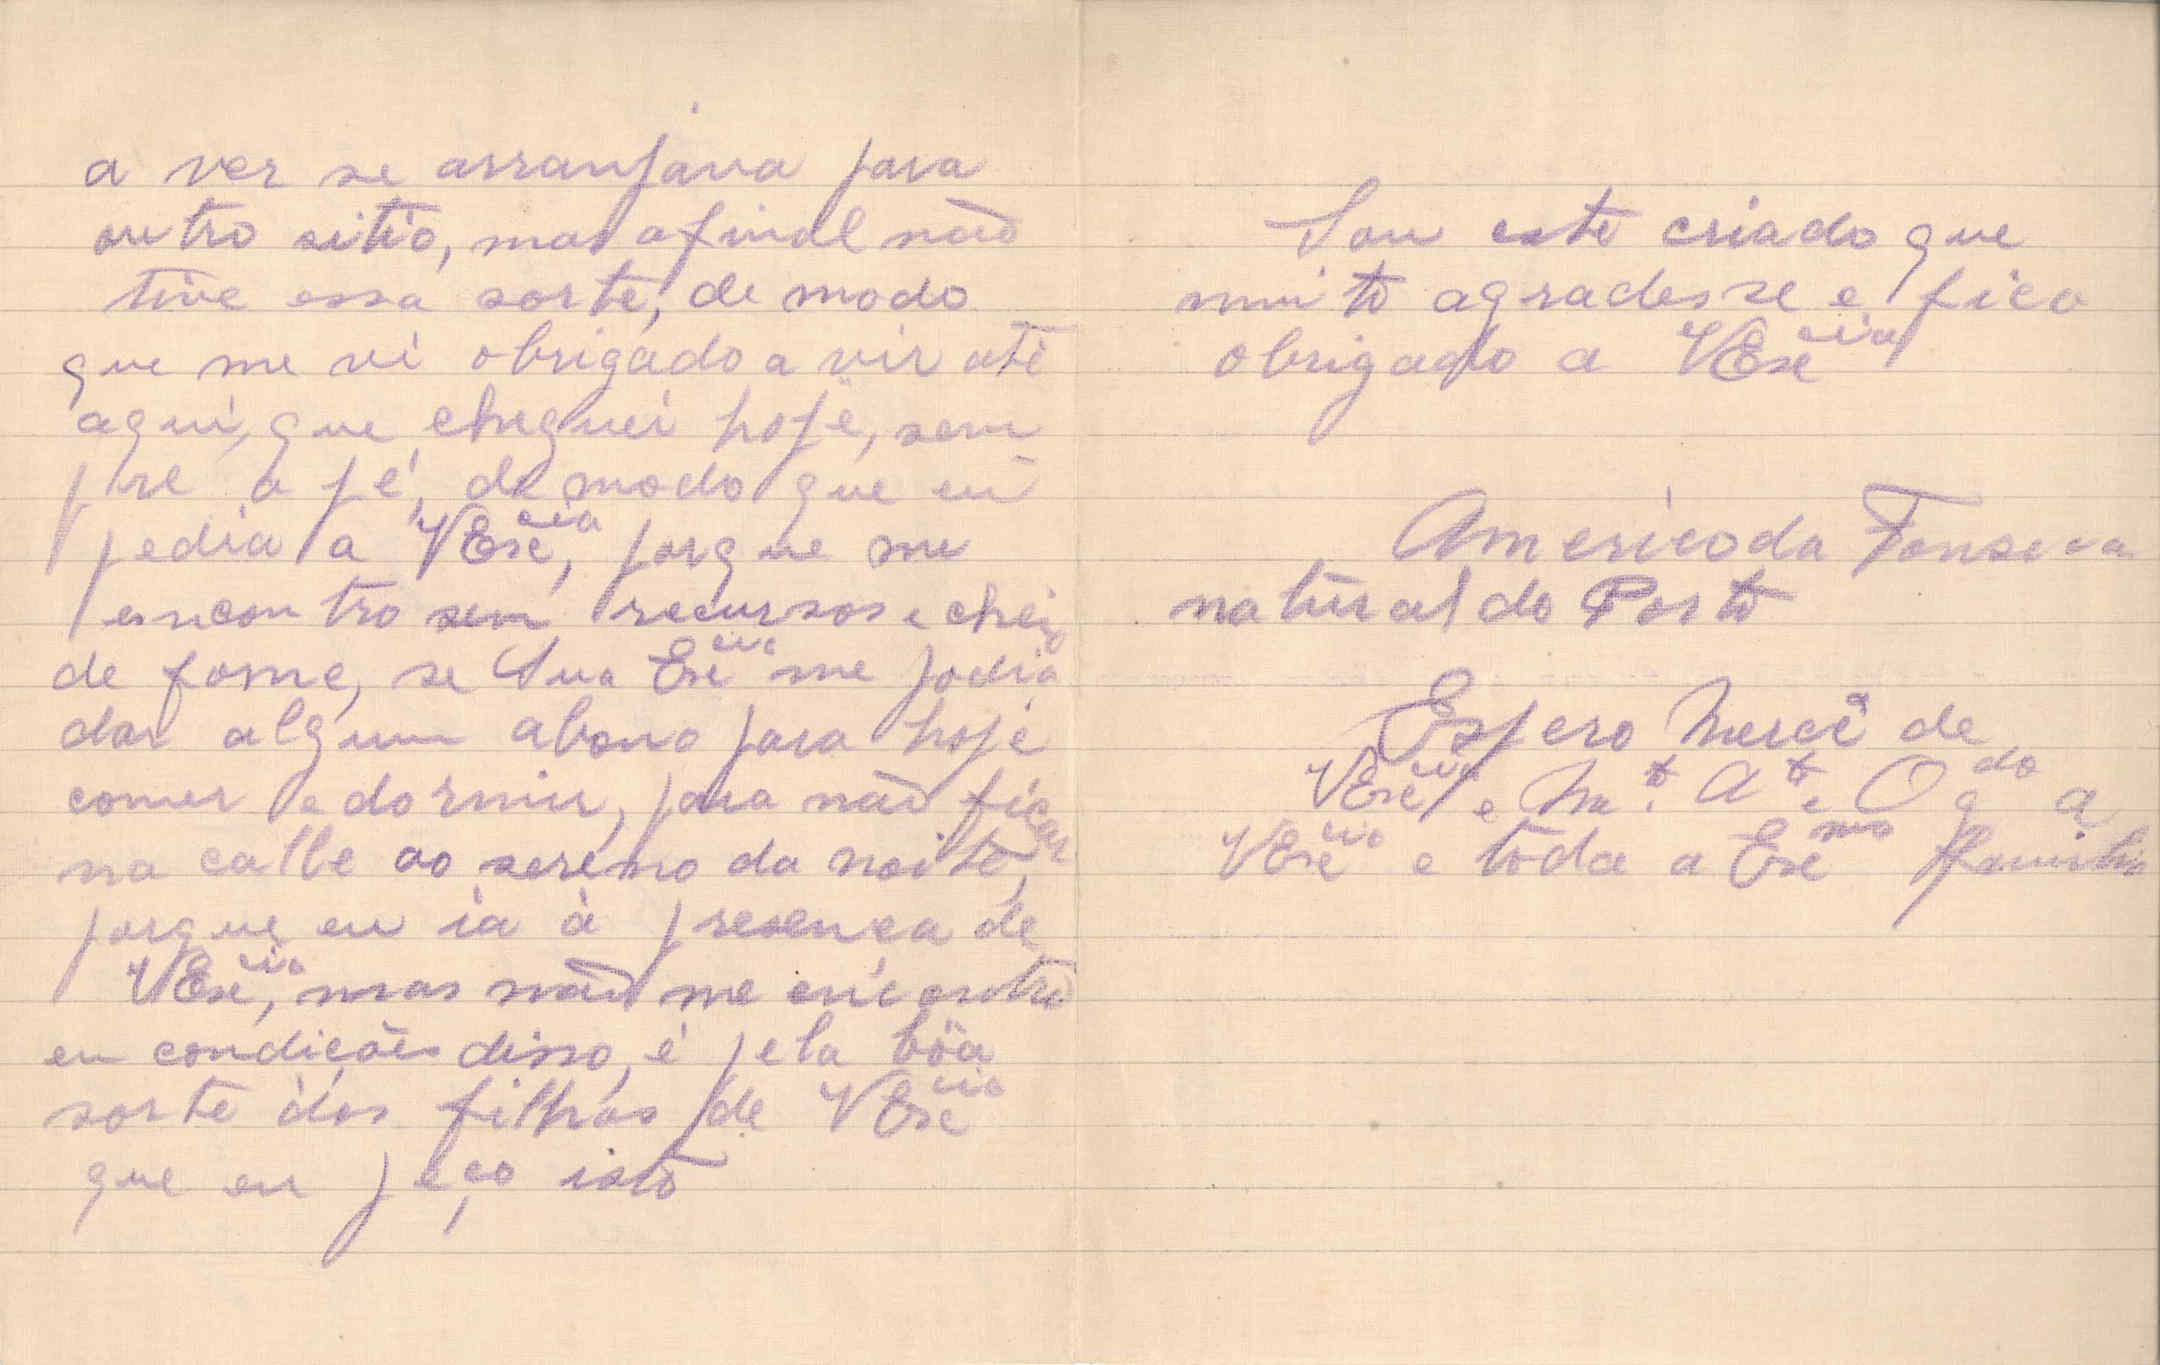 a ver se arranjava para
outro sitio, mas afinal não
tive essa sorte, de modo
que me vi obrigado a vir até
aqui, que cheguei hoje, sem
pre a pé, de modo que eu
pedia a VExcia, porque me
encontro sem recursos e cheio
de fome, se Sua Excia me podia
dar algum abono para hoje
comer e dormir, para não ficar
na calle ao sereno da noite,
porque eu ia à presença de
VExcia, mas não me encontro
em condições disso, é pela bôa
sorte dos filhos de VExcia
que eu peço isto
Sou este criado que
muito agradesse e fico
obrigado a VExcia
Americo da Fonseca
natural do Porto
Espero Mercê de
VExcia e Mto. Ato e Ogdo a
VExcia e tôda a Exema Familia